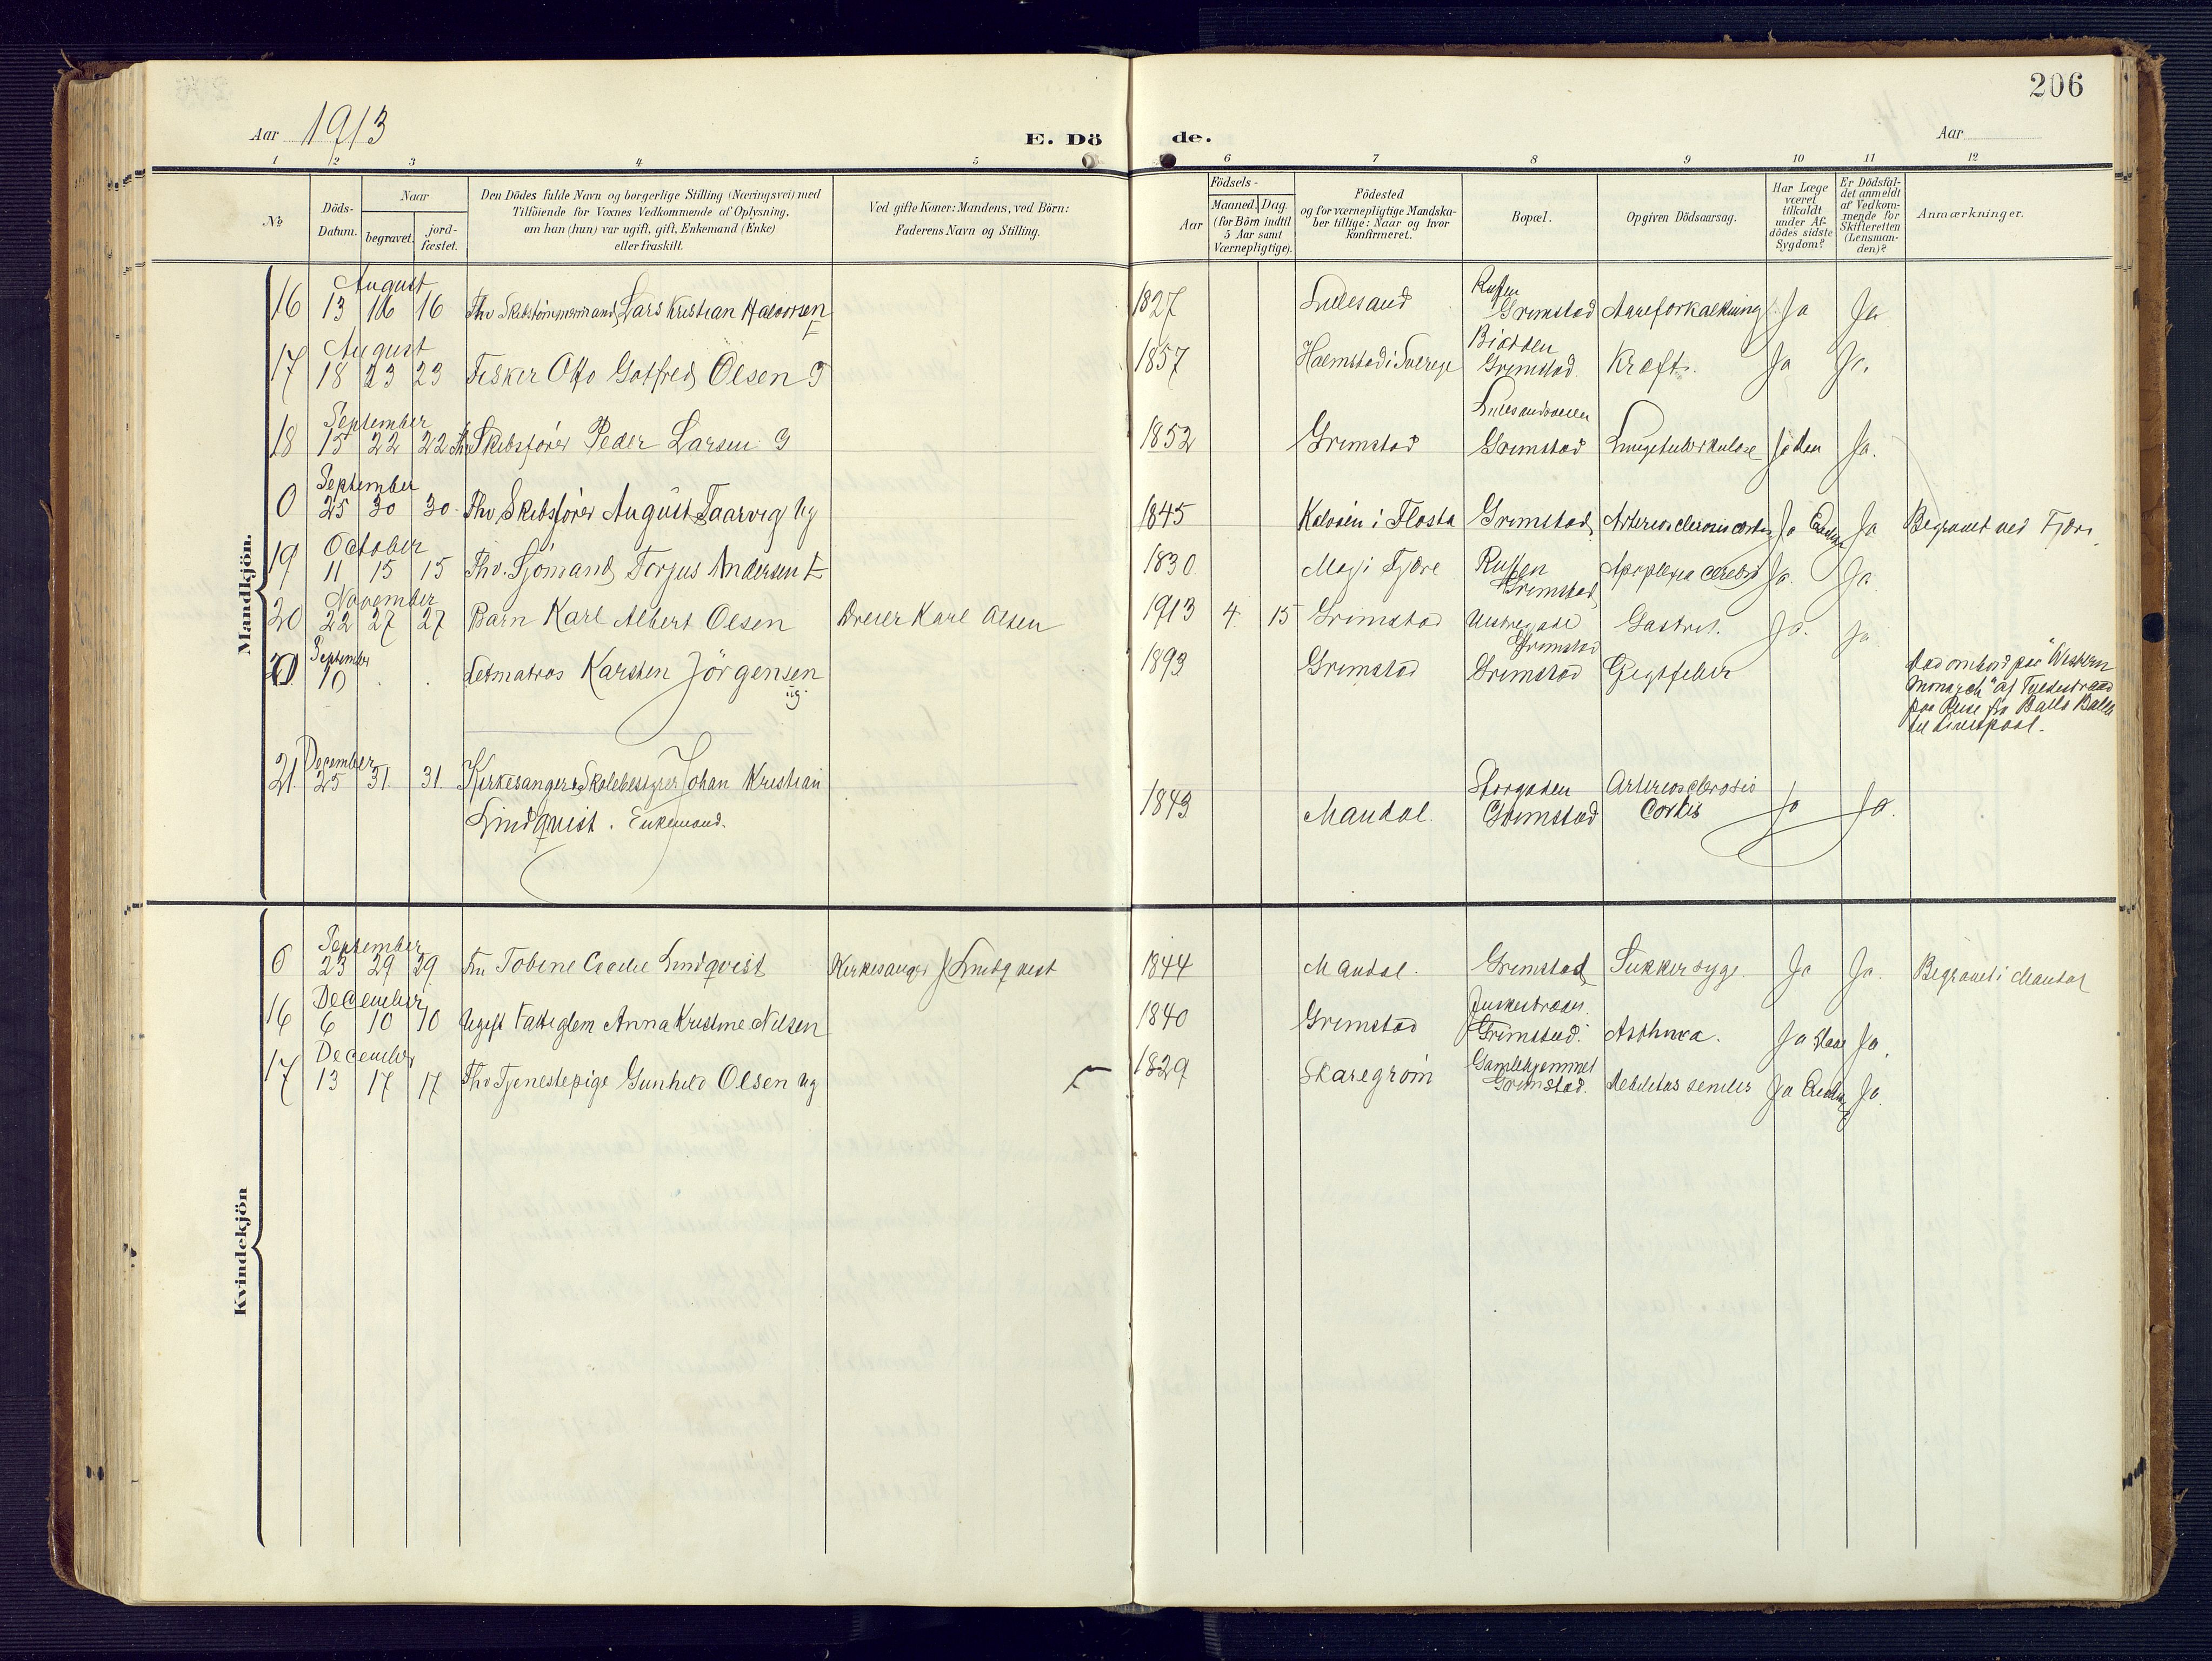 206
Aar 1913
E. Dö de.
Aar
1 2 3 4 5 6 7 8 9 10 11 12
No
Döds-Datum.
Naar
begravet.
jord-fæstet.
Den Dödes fulde Navn og borgerlige Stilling (Næringsvei) med
Tilföiende for Voxnes Vedkommende af Oplysning,
om han (hun) var ugift, gift, Enkemand (Enke)
eller fraskilt.
Ved gifte Koner: Mandens, ved Börn:
Faderens Navn og Stilling.
Födsels-
Aar
Maaned. Dag.
(for Börn indtil
5 Aar samt
Værnepligtige).
Födested
og for værnepligtige Mandska-
ber tillige: Naar og hvor
konfirmeret.
Bopæl.
Opgiven Dödsaarsag.
Har Læge
været
tilkaldt
under Af-
dödes sidste
Sygdom?
Er Dödsfal-
det anmeldt
af Vedkom-
mende for
Skifteretten
(Lensman-
den)?
Anmærkninger.
Mandkjön.
August
16 13 16 16 Fhv Skibstømmermand Lars Kristian Halvorsen E 1827 Lillesand Grimstad Aareforkalkning Ja Ja
August
17 18 23 23 Fisker Otto Gotfred Olsen G 1857 Halmstad i Sverige Bioden Grimstad Kræft. Ja Ja.
September
18 15 22 22 Fhv Skibsfører Peder Larsen G 1852 Grimstad Grimstad Lungetuberkulose Ja Ja.
September
0 25 30 30 Fhv. Skibsfører August Taarvig Ug 1845 Kalvøen i Flosta Grimstad Arteriosclerosis cordis Ja Ja Begravet ved Fjære
October
19 11 15 15 Fhv. Sjømand Torjus Andersen E 1830 Moy i Fjære Grimstad Apoplexia cerebri Ja. Ja
November
20 22 27 27 Barn Karl Albert Olsen Dreier Karl Olsen 1913 4. 15 Grimstad Grimstad Gastrit. Ja. Ja
September
0 10 Letmatros Karsten Jörgensen
ug. 1893 Grimstad Grimstad Gigtfeber
Død ombord paa "Western
Monarch" af Tvedestrand
paa Reise fra
til Liverpool.
December
21. 25 31. 31. Kirkesanger & Skolebestyrer Johan Kristian
Lindquist. Enkemand. 1843 Mandal. Storgaden Grimstad Arteriosclerosis
Cordis Ja Ja.
Kvindekjön
September
0 23 29 29. Fru Tobine Lindqvist Kirkesanger J Lindqvist 1844 Mandal. Grimstad Sukkersyge. Ja Ja. Begravet i Mandal
December
16 6 10 10 Ugift Fattiglem Anna Kristine Nilsen 1840 Grimstad Grimstad. Asthma. Ja Ja.
December
17 13 17 17 Fhv Tjenestepige Gunhild Olsen Ug 1829 Skaregrøm Gamlehjemmet
Grimstad. Debilitas senilis Ja Ja.